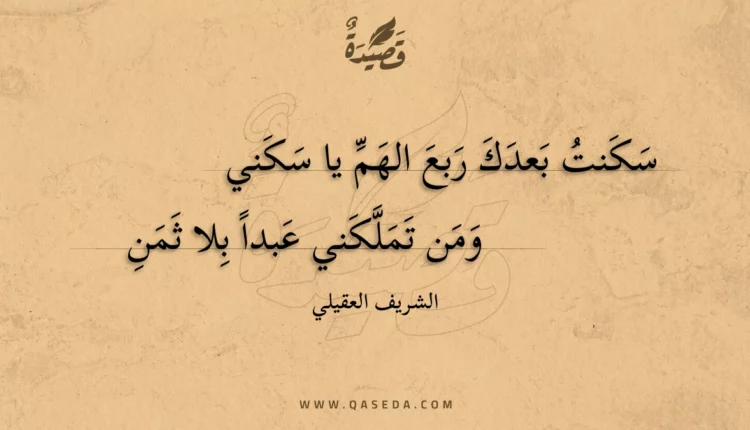 قَصِيْدَةٌ
سَكَنتُ بَعدَكَ رَبعَ الهَمِّ يا سَكَني
وَمَن تَمَلَّكَني عَبداً بِلا ثَمَنِ
الشريف العقيلي
WWW.QASEDA.COM